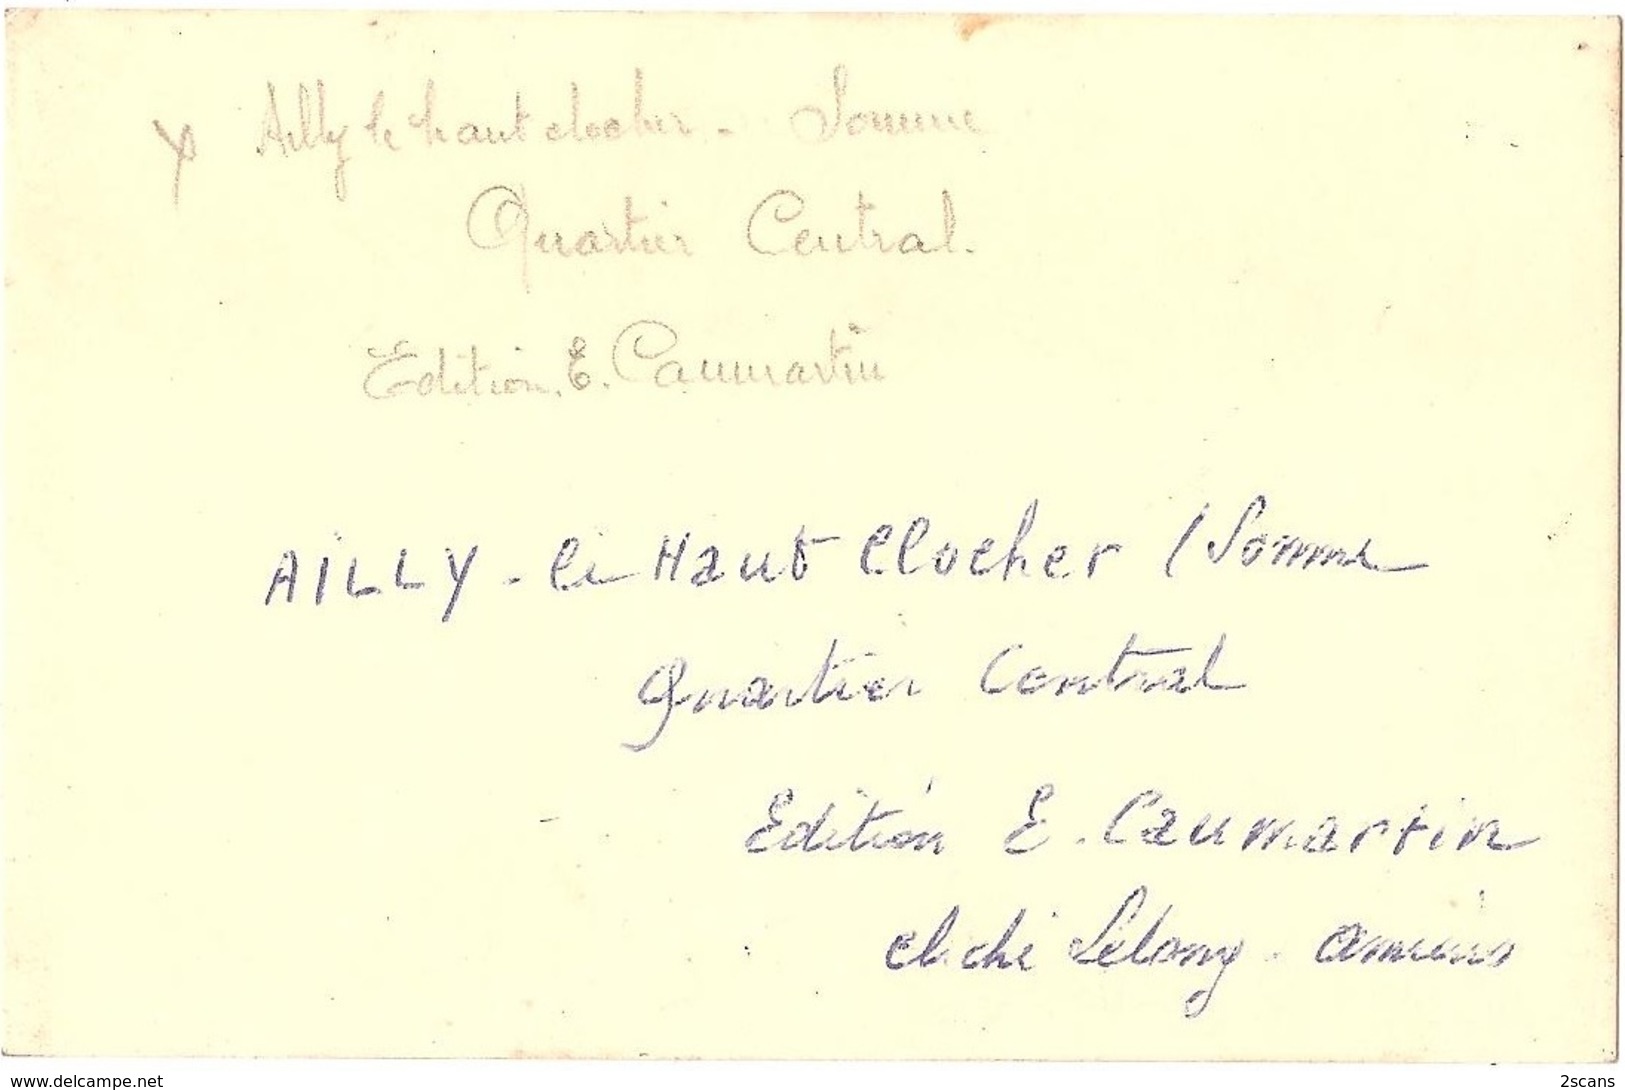 Ailly le haut clocher - Somme
Quartier Central.
Edition. E. Caumartin
AILLY - le Haut Clocher / Somme
Quartier Central
Edition E. Caumartin
cliché Lelong - amiens
www.delcampe.net
2scans